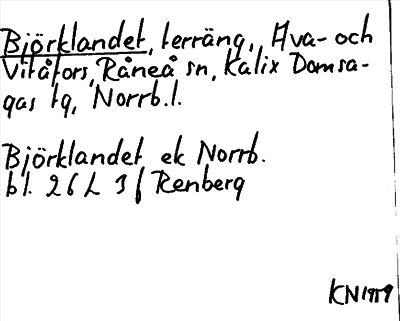 Björklandet, terräng, Hva- och
Vitåfors, Råneå sn, Kalix Domsa-
gas tg, Norrb. l.
Björklandet ek Norrb.
bl. 26 L 3 f Renberg
KN 1959